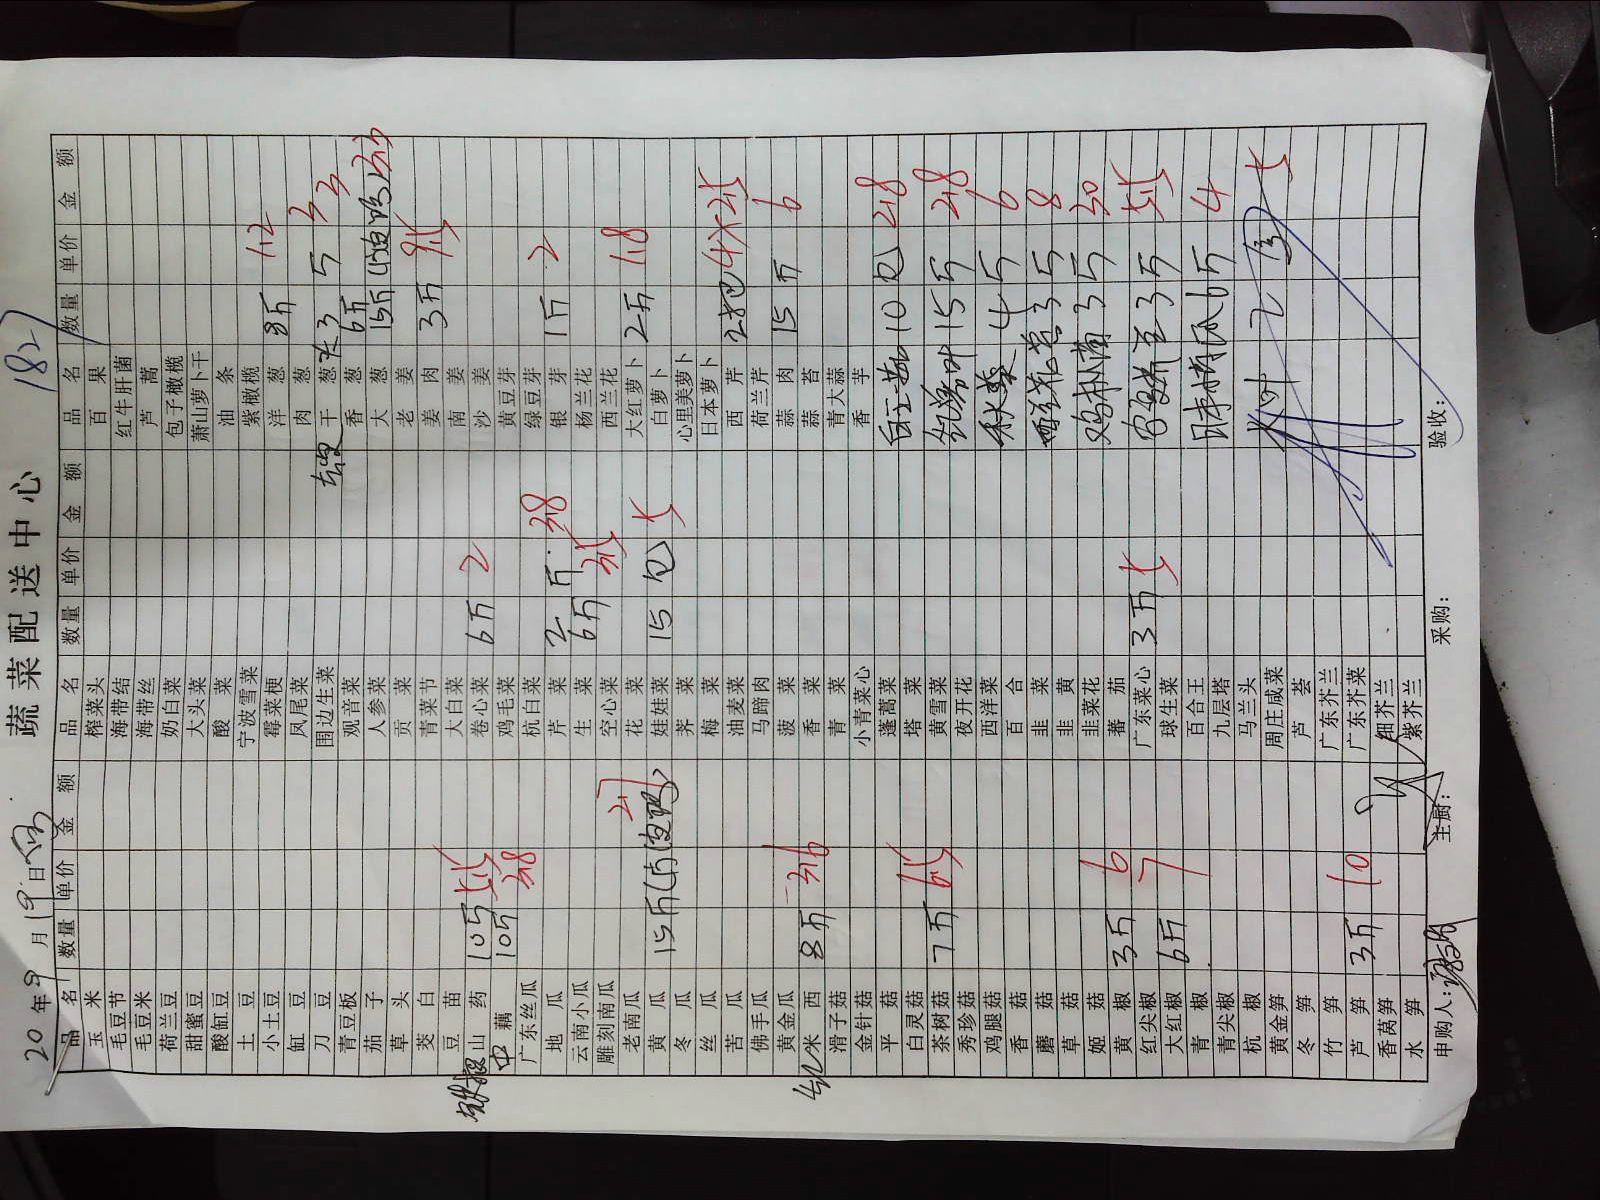 蔬菜配送中心
182
20 年 9 月 19 日
品名 数量 单价 金额 品名 数量 单价 金额 品名 数量 单价 金额
玉米 榨菜头 百果
毛豆节 海带结 红牛肝菌
毛豆米 海带丝 芦蒿
荷兰豆 奶白菜 包子橄榄
甜蜜豆 大头菜 萧山萝卜干
酸缸豆 酸菜 油条
土豆 宁波雪菜 紫橄榄
小土豆 霉菜梗 洋葱 8斤 1.2
缸豆 凤尾菜 肉葱
刀豆 围边生菜 干葱 3斤 3
青豆板 观音菜 香葱 6斤 3
茄子 人参菜 大葱 15斤 3.3
草头 贡菜 老姜
茭白 青菜节 姜肉 3斤 9.5
豆苗 大白菜 南姜
山药 10斤 5.5 卷心菜 6斤 2 沙姜
中藕 10斤 3.8 鸡毛菜 黄豆芽
广东丝瓜 杭白菜 绿豆芽 1斤 2
地瓜 芹菜 2斤 3.8 银芽
云南小瓜 生菜 6斤 3.5 杨兰花
雕刻南瓜 空心菜 西兰花
老南瓜 花菜 大红萝卜 2斤 1.8
黄瓜 15斤 2.7 娃娃菜 15包 5 白萝卜
冬瓜 荠菜 心里美萝卜
丝瓜 梅菜 日本萝卜
苦瓜 油麦菜 西芹 2把 4×2.5
佛手瓜 马蹄肉 荷兰芹
黄金瓜 菠菜 蒜肉 15斤 6
西米 8斤 3.6 香菜 蒜苔
滑子菇 青菜 青大蒜
金针菇 小青菜心 香芋
平菇 蓬蒿菜 白玉菇 10包 2.8
白灵菇 塔菜
茶树菇 7斤 6.5 黄雪菜 15斤 2.8
秀珍菇 夜开花
鸡腿菇 西洋菜 秋葵 4斤 6
香菇 百合
蘑菇 韭菜 3斤 8
草菇 韭黄
姬菇 韭菜花 3斤 30
黄椒 3斤 6 蕃茄
红尖椒 广东菜心 3斤 5 3斤 5.5
大红椒 6斤 7 球生菜
青椒 百合王 日本南瓜 6斤 4
青尖椒 九层塔
杭椒 马兰头
黄金笋 周庄咸菜
冬笋 芦荟
竹笋 广东芥兰
芦笋 3斤 10 广东芥菜
香莴笋 细芥兰
水笋 紫芥兰
申购人： 主厨： 采购： 验收：